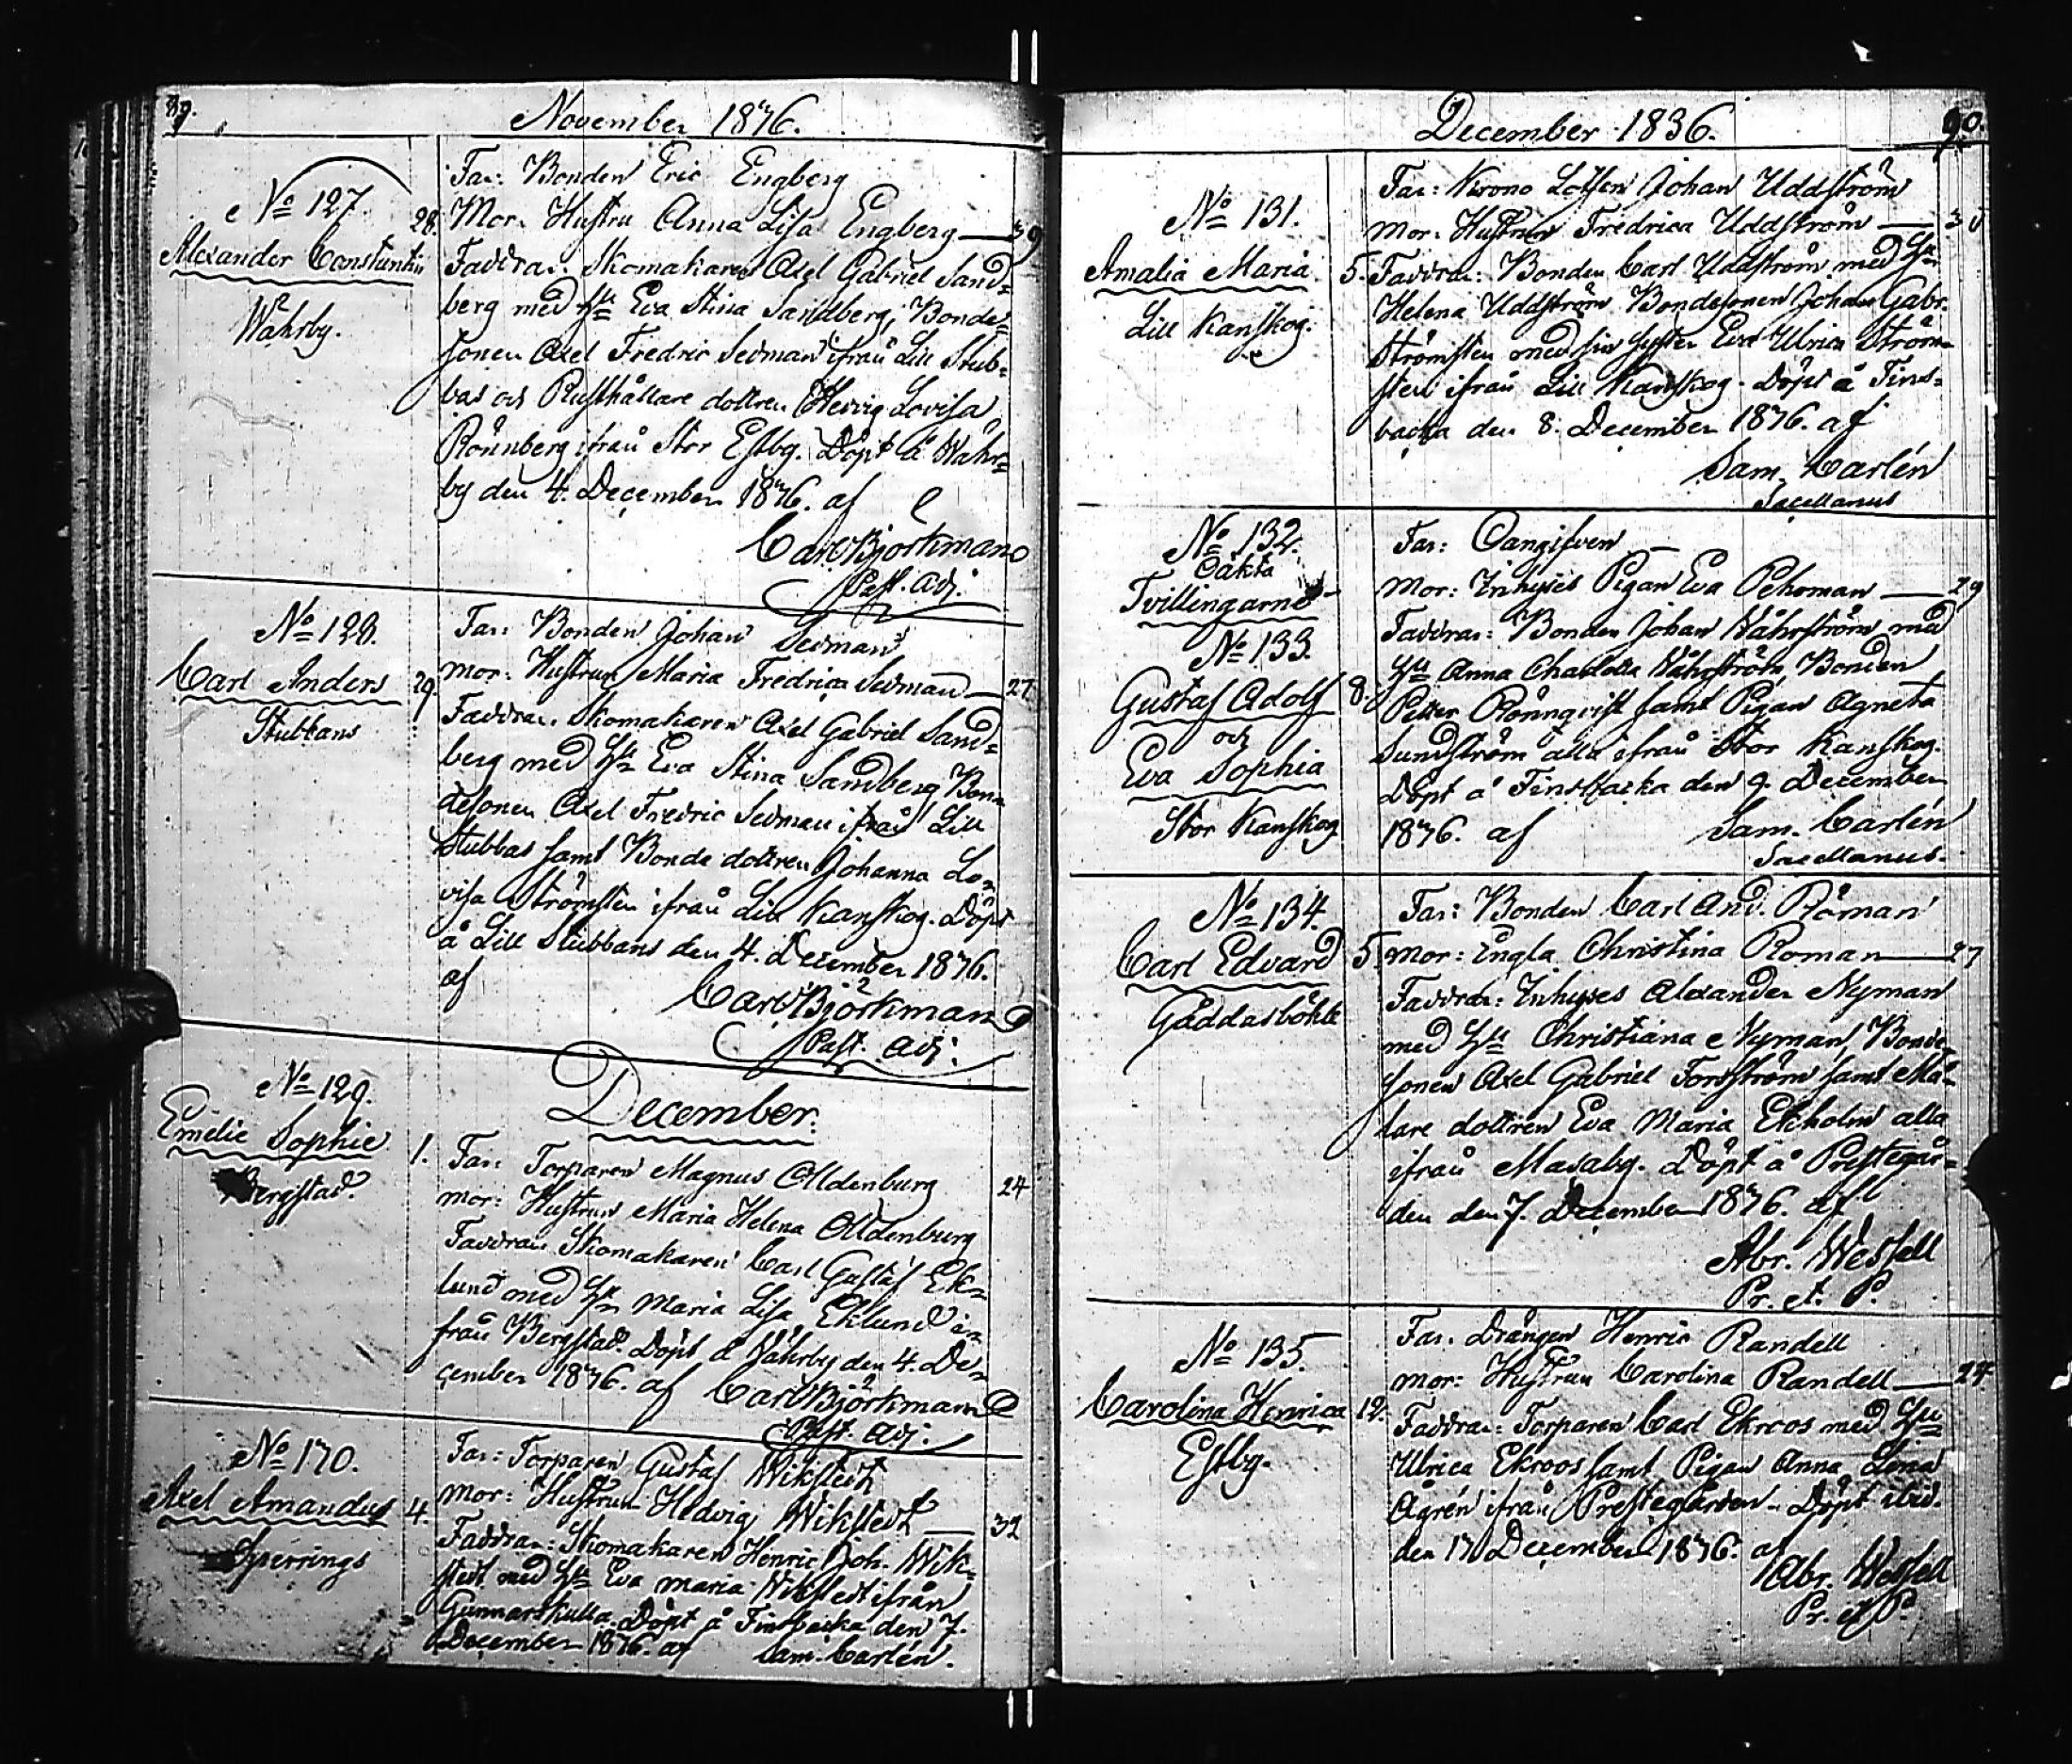 89.
November 1836.
No 127
Alexander Constantin
Wåhrby.
28.
Far: Bonden Eric Engberg
Mor: Hustru Anna Lisa Engberg — 39
Faddrar: Skomakaren Axel Gabriel Sand=
berg med Hu Eva Stina Sandberg, Bonde=
sonen Axel Fredric Sedman ifrån Lill Stub=
bas och Rusthållare dottren Hedvig Lovisa
Rönnberg ifrån Stor Estbg. Döpt å Wåhr=
by den 4. December 1836. af
Carl Björkman
Past. Adj.
No 128.
Carl Anders
Stubbans
29.
Far: Bonden Johan Sedman
Mor: Hustrun Maria Fredrica Sedman — 27
Faddrar: Skomakaren Axel Gabriel Sand=
berg med Hu Eva Stina Sandberg Bon=
desonen Axel Fredric Sedman ifrån Lill
Stubbas samt Bonde dottren Johanna Lo=
visa Strömsten ifrån Lill Kanskog. Döpt
å Lill Stubbans den 4. December 1836.
af
Carl Björkman
Past. Adj:
December.
No 129.
Emelie Sophie
Bergstad.
1.
Far: Torparen Magnus Olldenburg 24
Mor: Hustrun Maria Helena Olldenburg
Faddrar Skomakaren Carl Gustaf Ek=
lund med Hu Maria Lisa Eklund i=
från Bergstad. Döpt å Wåhrby den 4. De=
cember 1836. af Carl Björkman
Past. Adj:
No 130.
Axel Amandus
Sperrings
4.
Far: Torparen Gustaf Wikstedt
Mor: Hustrun Hedvig Wikstedt — 32
Faddrar: Skomakaren Henric Joh. Wik=
stedt med Hu Eva Maria Wikstedt ifrån
Gunnarskulla. Döpt å Finsbacka den 7.
December 1836. af Sam. Carlén.
December 1836.
90.
No 131.
Amalia Maria
Lill Kanskog.
5.
Far: Krono Lotsen Johan Uddström
Mor: Hustrun Fredrica Uddström —
Faddrar: Bonden Carl Uddström med Hu
Helena Uddström Bondesonen Johan Gabr.
Strömsten med sin Syster Eva Ulrica Ström=
sten ifrån Lill Kanskog. Döpt å Fins=
backa den 8. December 1836. af
Sam. Carlén
Sacellanus
No 132.
Oäkta
Tvillingarne
No 133.
Gustaf Adolf
och
Eva Sophia
Stor Kanskog
8.
Far: Oangifven —
Mor: Inhyses Pigan Eva Pehrman — 29
Faddrar: Bonden Johan Wåhrström med
Hu Anna Charlotta Wåhrström, Bonden
Petter Rönnqvist samt Pigan Agneta
Sundström alla ifrån Stor Kanskog.
Döpt å Finsbacka den 9. December
1836. af Sam. Carlén
Sacellanus.
No 134.
Carl Edvard
Gäddasböhle
5.
Far: Bonden Carl And. Roman
Mor: Engla Christina Roman — 27
Faddrar: Inhyses Alexander Nyman
med Hu Christiana Nyman, Bonde=
sonen Axel Gabriel Forsström samt Må=
lare dottren Eva Maria Ekholm alla
ifrån Masaby. Döpt å Prestegår=
den den 7. December 1836. af
Abr. Westell
Pr. et. P.
No 135.
Carolina Henrica
Estbg.
12.
Far: Drängen Henric Randell
Mor: Hustrun Carolina Randell — 24.
Faddrar: Torparen Carl Ekroos med Hu
Ulrica Ekroos samt Pigan Anna Lena
Ågrén ifrån Prestegården. Döpt ibid.
den 17 December 1836. af
Abr. Westell
Pr. et P.